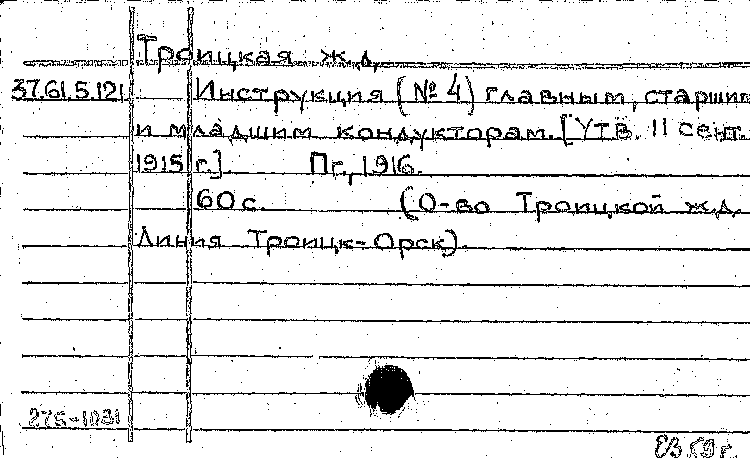 Троицкая ж.д.
37.61.5.121 Инструкция (№ 4) главным, старшим
и младшим кондукторам. [Утв. 11 сент.
1915 г.]. Пг., 1916.
60 с. (О-во Троицкой ж.д.
Линия Троицк-Орск).
275-1031